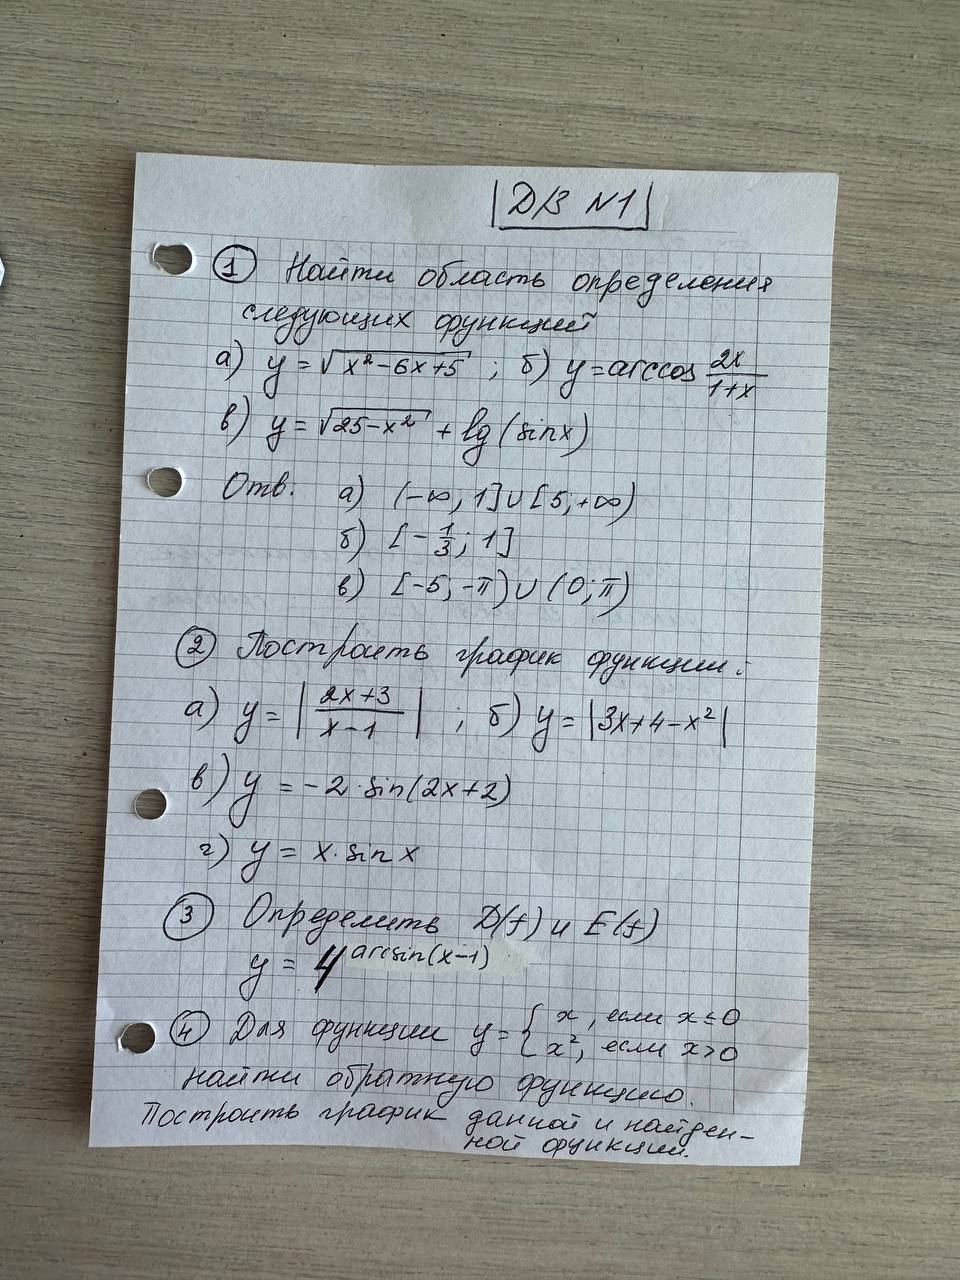 ДЗ №1
① Найти область определения
следующих функций
а) y = √(x² - 6x + 5) ; б) y = arccos 2x/(1+x)
в) y = √(25 - x²) + lg (sin x)
Отв. а) (-∞; 1] ∪ [5; +∞)
б) [-1/3; 1]
в) [-5; -π) ∪ (0; π)
② Построить график функции:
а) y = |(2x+3)/(x-1)| ; б) y = |3x+4-x²|
в) y = -2·sin(2x+2)
г) y = x·sin x
③ Определить D(f) и E(f)
y = 4^(arcsin(x-1))
④ Для функции y = { x, если x ≤ 0
x², если x > 0
найти обратную функцию.
Построить график данной и найден-
ной функции.